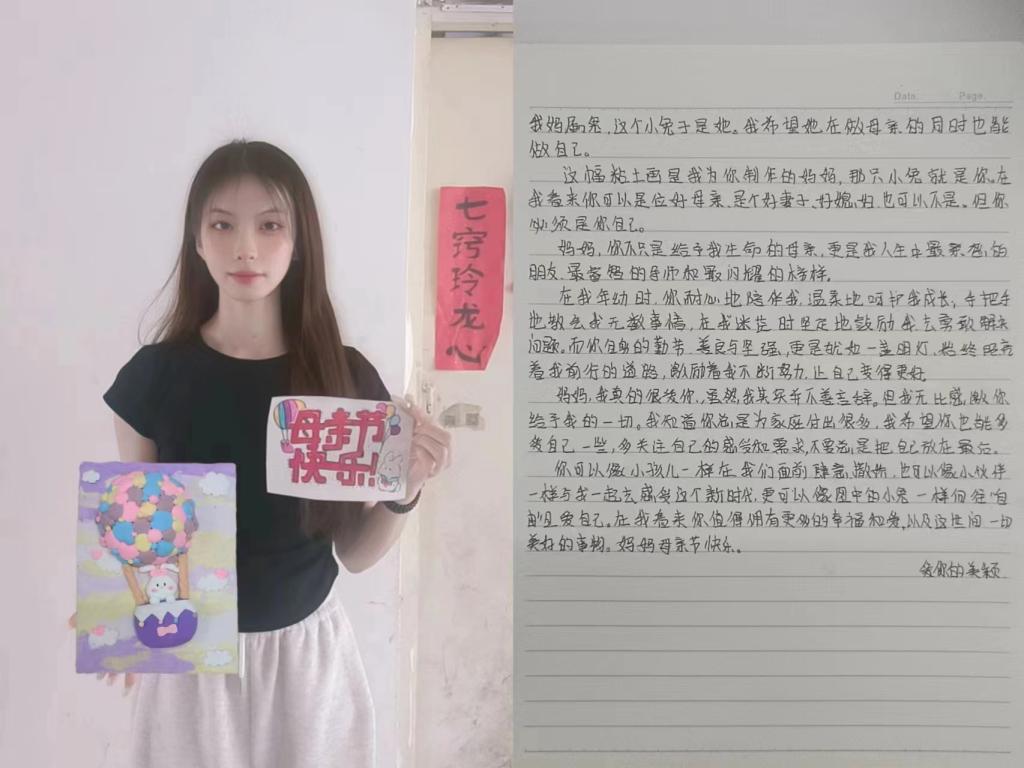 七窍玲龙心
母亲节
快乐!!
Data. Page.
我妈属兔,这个小兔子是她。我希望她在做母亲的同时也能
做自己。
这幅粘土画是我为你制作的妈妈,那只小兔就是你,在
我看来你可以是位好母亲、是个好妻子、好媳妇,也可以不是。但你
必须是你自己。
妈妈,你不只是给予我生命的母亲,更是我人生中最亲密的
朋友、最智慧的导师和最闪耀的榜样。
在我年幼时,你耐心地陪伴我,温柔地呵护我成长,手把手
地教会我无数事情,在我迷茫时坚定地鼓励我去勇敢解决
问题。而你自身的勤劳、善良与坚强,更是犹如一盏明灯,始终照亮
着我前行的道路,激励着我不断努力,让自己变得更好。
妈妈,我真的很爱你,虽然我其实并不善言辞。但我无比感激你
给予我的一切。我知道你总是为家庭付出很多,我希望你也能多
爱自己一些,多关注自己的感受和需求,不要总是把自己放在最后。
你可以像小孩儿一样在我们面前肆意撒娇,也可以像小伙伴
一样与我一起去感受这个新时代,更可以像图中的小兔一样向往自
由且爱自己。在我看来你值得拥有更多的幸福和爱,以及这世间一切
美好的事物。妈妈母亲节快乐。
爱你的美颖